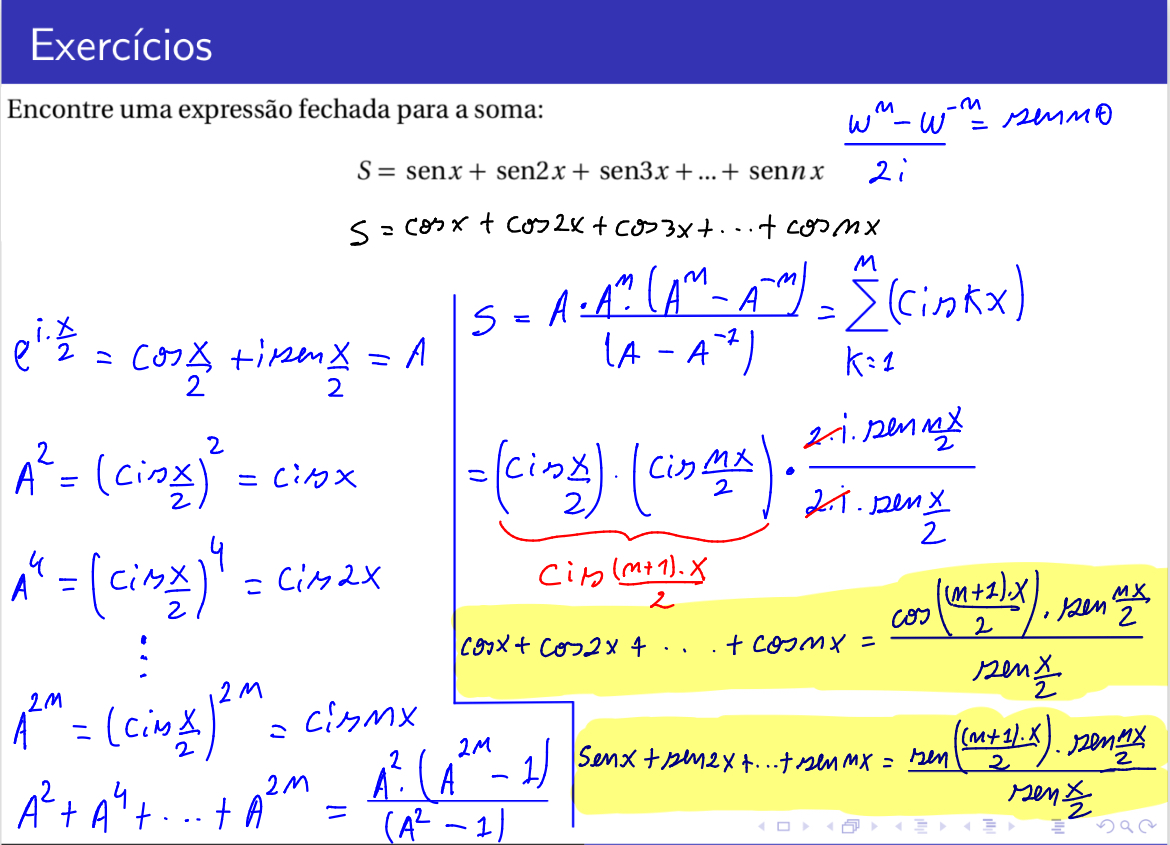 Exercícios
Encontre uma expressão fechada para a soma:
S = senx + sen2x + sen3x + ... + sennx
(w^n − w^-n)/2i = sen nθ
S = cosx + cos2x + cos3x + ... + cosnx
e^(i·x/2) = cos x/2 + i sen x/2 = A
A^2 = (cis x/2)^2 = cis x
A^4 = (cis x/2)^4 = cis 2x
⋮
A^2n = (cis x/2)^2n = cis nx
A^2 + A^4 + ... + A^2n = A^2·(A^2n − 1)/(A^2 − 1)
S = A · A^n·(A^n − A^-n)/(A − A^-1) = ∑ k=1 n (cis kx)
= (cis x/2)·(cis nx/2) · 2·i·sen nx/2 / 2·i·sen x/2
cis (n+1)·x/2
cosx + cos2x + ... + cosnx = cos((n+1)·x/2)·sen nx/2 / sen x/2
senx + sen2x + ... + sen nx = sen((n+1)·x/2)·sen nx/2 / sen x/2